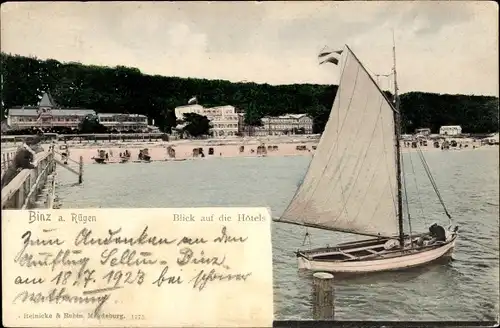 Binz a. Rügen
Blick auf die Hôtels
Zum Andenken an den
Ausflug Sellin - Binz
am 18.7.1923 bei schöner
Witterung
Reinicke & Rubin, Magdeburg. 1172.